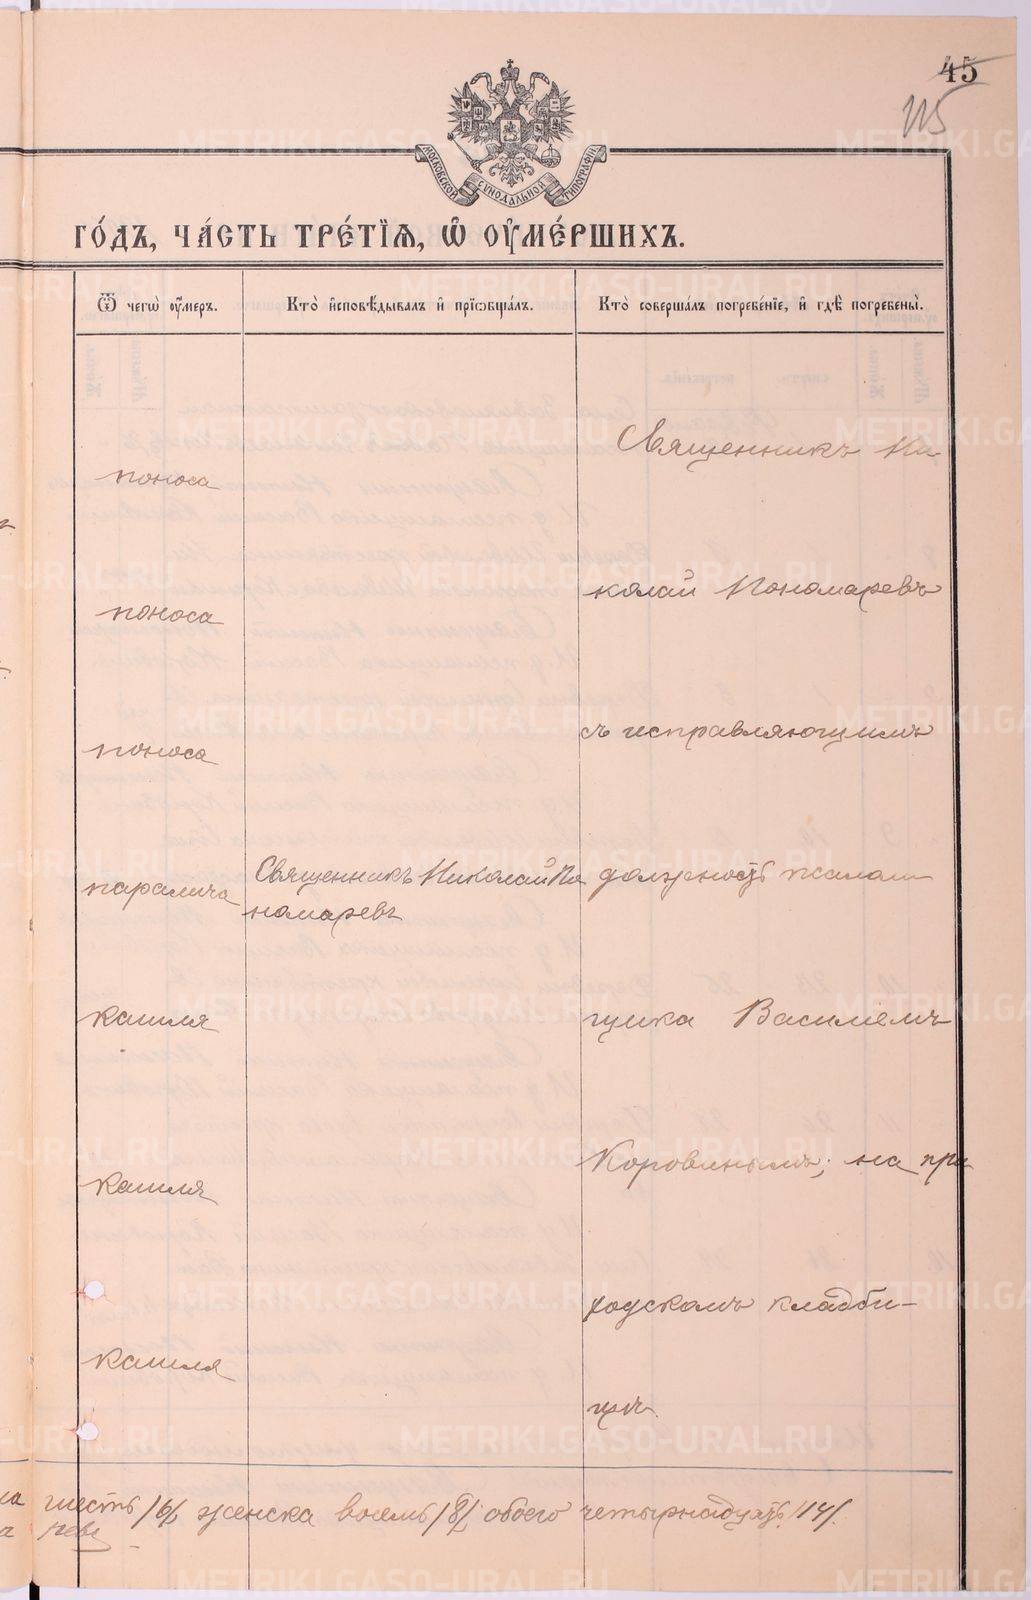 45
115
МОСКОВСКОЙ СУНОДАЛЬНОЙ ТИПОГРАФІИ
ГО́ДЪ, ЧА́СТЬ ТРЕ́ТІѦ, Ѽ ОУ҆МЕ́РШИХЪ.
Ѿ чегѡ̀ оу҆́меръ.
Кто̀ и҆сповѣ́дывалъ и҆ прїѡбща́лъ.
Кто̀ соверша́лъ погребе́нїе, и҆ гдѣ̀ погребены̀.
Священникъ Ни-
поноса
колай Пономаревъ
поноса
съ исправляющимъ
поноса
паралича
Священникъ Николай По
номаревъ
должность псалом
кашля
щика Василіемъ
Коровинымъ; на при
кашля
ходскомъ кладби-
кашля
щѣ.
шесть /6/, женска восемь /8/, обоего четырнадцать /14/.
METRIKI.GASO-URAL.RU